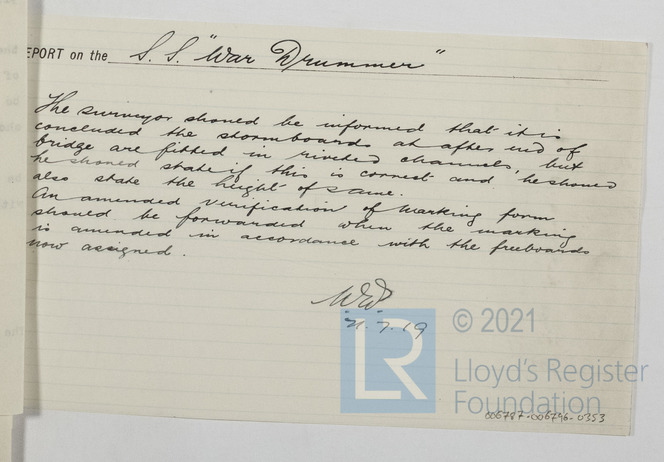 EPORT on the S.S. "War Drummer"
The surveyor should be informed that it is
concluded the stormboards at after end of
bridge are fitted in riveted channels, but
he should state if this is correct and he should
also state the height of same.
An amended verification of marking form
should be forwarded when the marking
is amended in accordance with the freeboards
now assigned.
7.19
LR
© 2021
Lloyd's Register
Foundation
006787-006796-0353